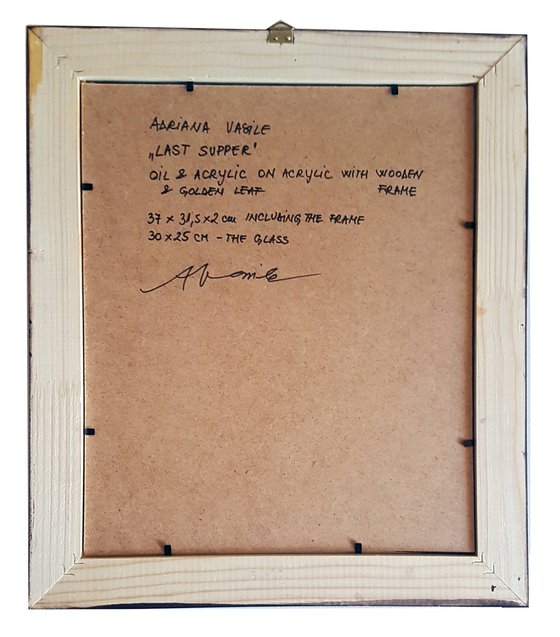 ADRIANA VASILE
„LAST SUPPER"
OIL & ACRYLIC ON ACRYLIC WITH WOODEN
& GOLDEN LEAF FRAME
37 x 31,5 x 2 cm INCLUDING THE FRAME
30 x 25 CM - THE GLASS
AVasile